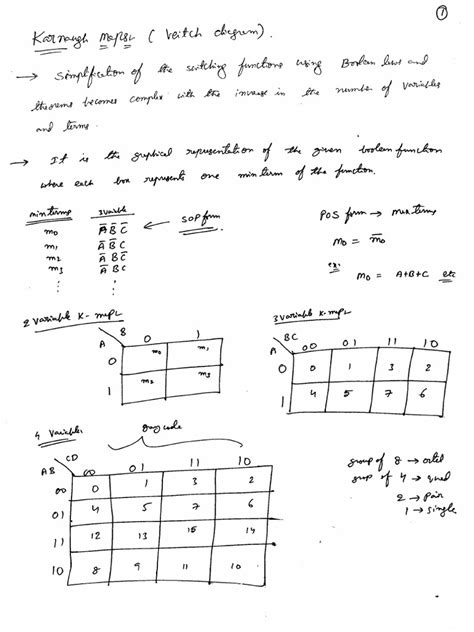 ①
Karnaugh Maps (Veitch diagram).
→ Simplification of the switching functions using Boolean laws and
theorems becomes complex with the increase in the number of variables
and terms.
→ It is the graphical representation of the given boolean function
where each box represents one minterm of the function.
minterms 3 variable
m₀ A̅ B̅ C̅ ← SOP form
m₁ A̅ B̅ C
m₂ A̅ B C̅
m₃ A̅ B C
POS form → max terms
M₀ = m̅₀
ex:
M₀ = A+B+C etc
2 variable K-map
A B 0 1
0 m₀ m₁
1 m₂ m₃
3 variable K-map
A BC 00 01 11 10
0 0 1 3 2
1 4 5 7 6
4 Variables
Gray code
AB CD 00 01 11 10
00 0 1 3 2
01 4 5 7 6
11 12 13 15 14
10 8 9 11 10
group of 8 → octet
group of 4 → quad
2 → pair
1 → single